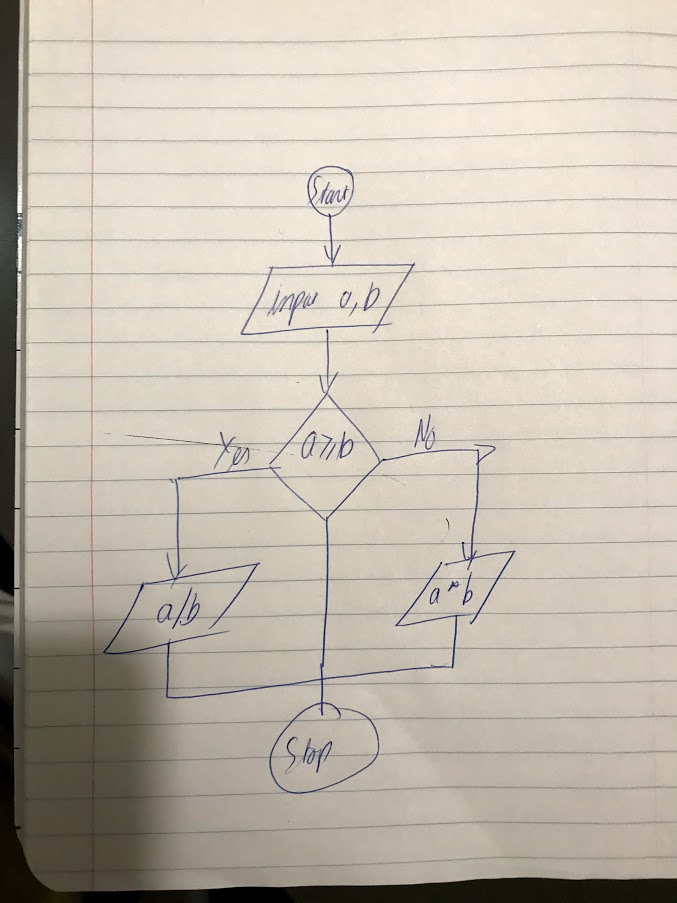 Start
input a, b
a⩾b
Yes
No
a/b
a*b
Stop